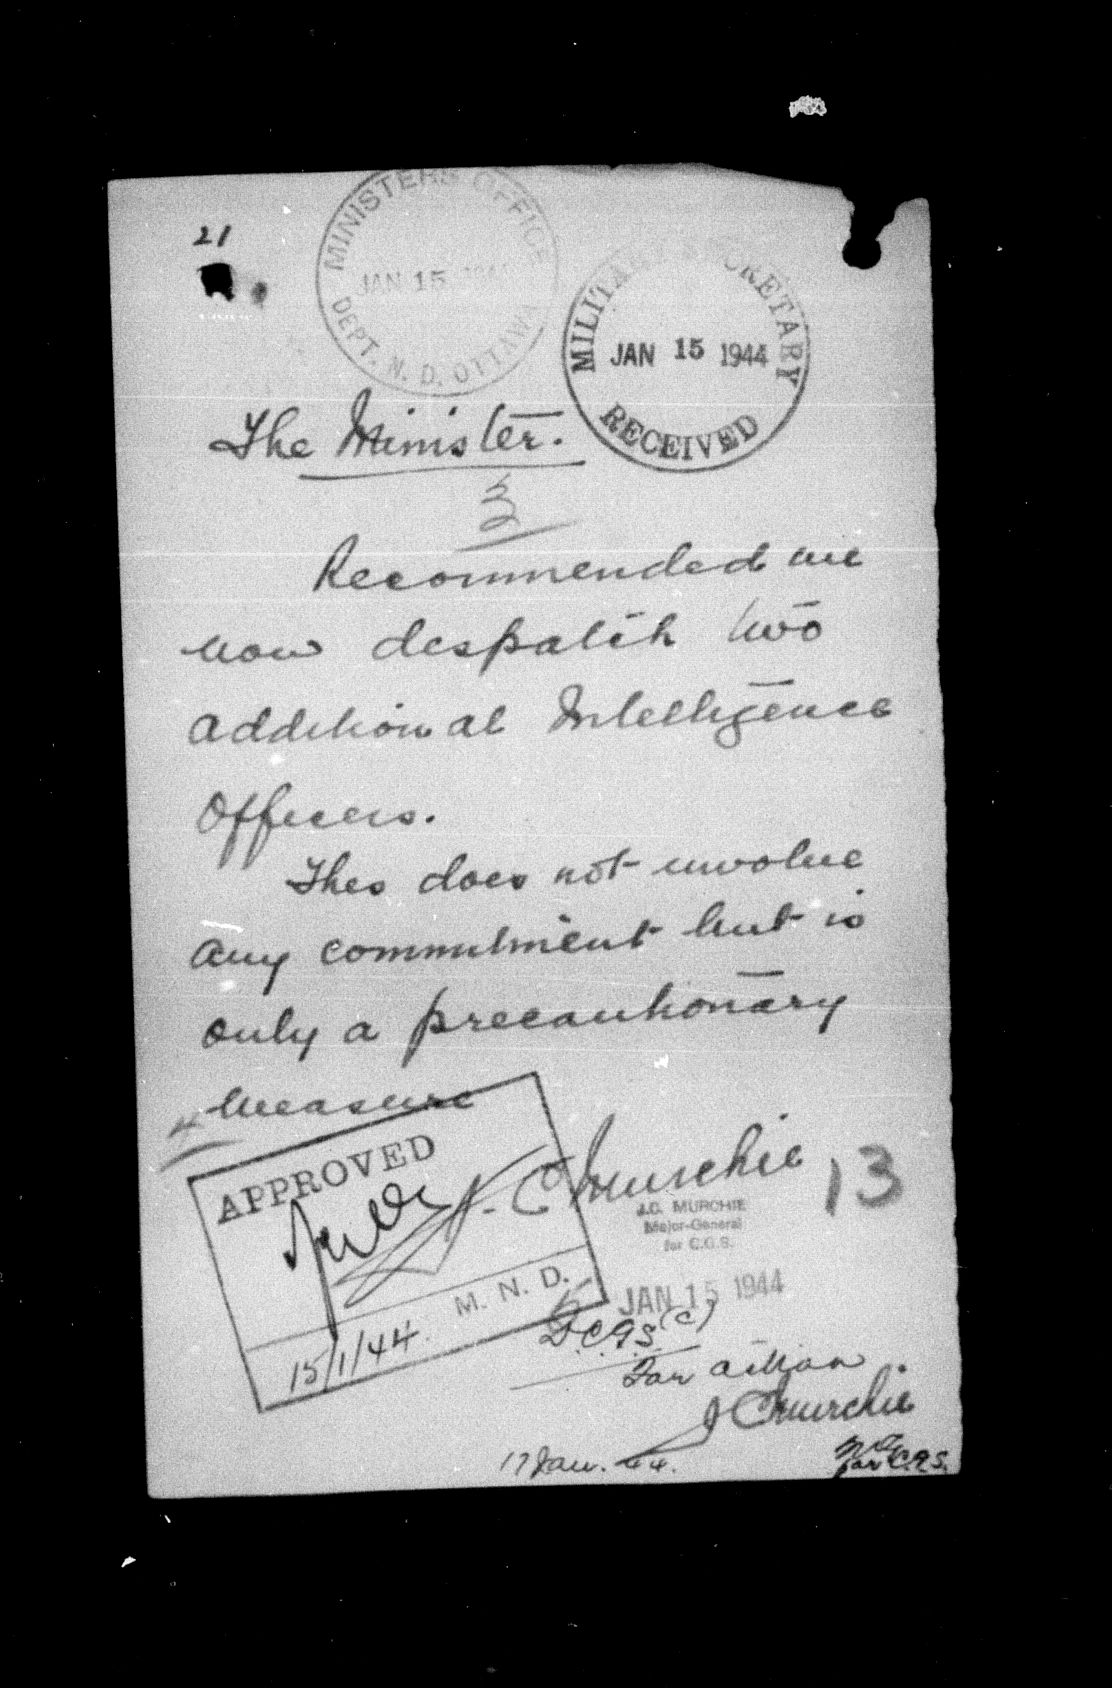 21
MINISTERS OFFICE
JAN 15 1944
DEPT. N. D. OTTAWA
MILITARY SECRETARY
JAN 15 1944
RECEIVED
The Minister.
3
Recommended we
now despatch two
additional Intelligence
Officers.
This does not involve
any commitment but is
only a precautionary
measure
4
APPROVED
J. C. Murchie
13
J.C. MURCHIE
Major-General
for C.G.S.
M. N. D.
JAN 15 1944
15/1/44.
D.C.G.S.(C)
For action
JCMurchie
17 Jan. 44.
for C.G.S.